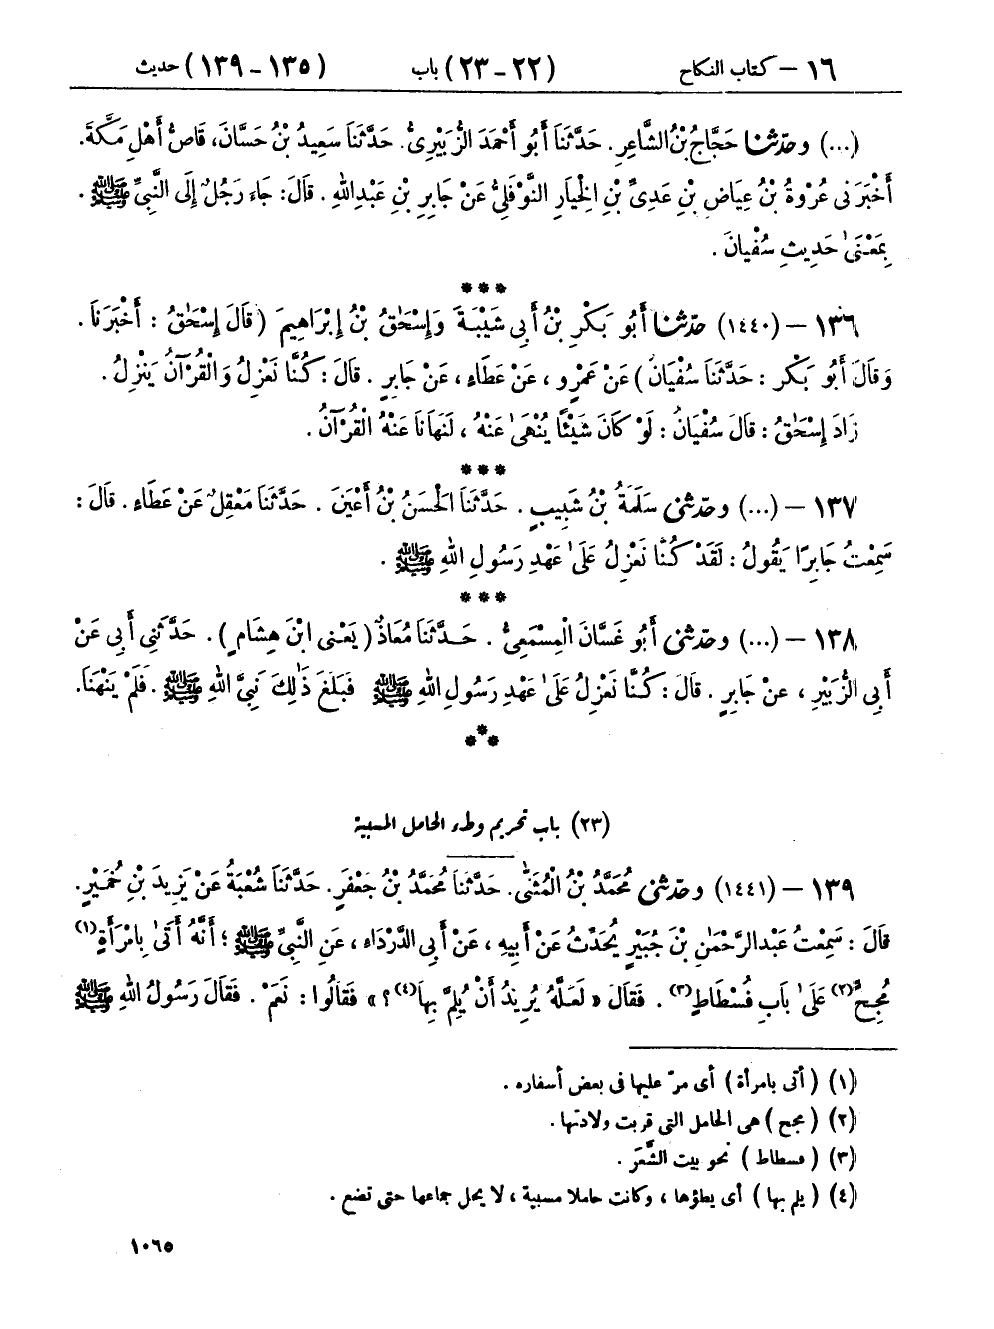 ١٦ – كتاب النكاح (٢٢ – ٢٣) باب (١٣٥ – ١٣٩) حديث
(...) وحدّثنا حَجَّاجُ بْنُ الشَّاعِرِ. حَدَّثَنَا أَبُو أَحْمَدَ الزُّبَيْرِىُّ. حَدَّثَنَا سَعِيدُ بْنُ حَسَّانَ، قَاصُّ أَهْلِ مَكَّةَ.
أَخْبَرَنِى عُرْوَةُ بْنُ عِيَاضِ بْنِ عَدِىِّ بْنِ الْخِيَارِ النَّوْفَلِىُّ عَنْ جَابِرِ بْنِ عَبْدِ اللهِ. قَالَ: جَاءَ رَجُلٌ إِلَى النَّبِىِّ ﷺ.
بِمَعْنَىٰ حَدِيثِ سُفْيَانَ.
***
١٣٦ – (١٤٤٠) حدّثنا أَبُو بَكْرِ بْنُ أَبِى شَيْبَةَ وَإِسْحَٰقُ بْنُ إِبْرَاهِيمَ (قَالَ إِسْحَٰقُ: أَخْبَرَنَا.
وَقَالَ أَبُو بَكْرٍ: حَدَّثَنَا سُفْيَانُ) عَنْ عَمْرٍو، عَنْ عَطَاءٍ، عَنْ جَابِرٍ. قَالَ: كُنَّا نَعْزِلُ وَالْقُرْآنُ يَنْزِلُ.
زَادَ إِسْحَٰقُ: قَالَ سُفْيَانُ: لَوْ كَانَ شَيْئًا يُنْهَىٰ عَنْهُ، لَنَهَانَا عَنْهُ الْقُرْآنُ.
***
١٣٧ – (...) وحدّثنى سَلَمَةُ بْنُ شَبِيبٍ. حَدَّثَنَا الْحَسَنُ بْنُ أَعْيَنَ. حَدَّثَنَا مَعْقِلٌ عَنْ عَطَاءٍ. قَالَ:
سَمِعْتُ جَابِرًا يَقُولُ: لَقَدْ كُنَّا نَعْزِلُ عَلَىٰ عَهْدِ رَسُولِ اللهِ ﷺ.
***
١٣٨ – (...) وحدّثنى أَبُو غَسَّانَ الْمِسْمَعِىُّ. حَدَّثَنَا مُعَاذٌ (يَعْنِى ابْنَ هِشَامٍ). حَدَّثَنِى أَبِى عَنْ
أَبِى الزُّبَيْرِ، عَنْ جَابِرٍ. قَالَ: كُنَّا نَعْزِلُ عَلَىٰ عَهْدِ رَسُولِ اللهِ ﷺ فَبَلَغَ ذَٰلِكَ نَبِىَّ اللهِ ﷺ. فَلَمْ يَنْهَنَا.
***
(٢٣) باب تحريم وطء الحامل المسبية
١٣٩ – (١٤٤١) وحدّثنى مُحَمَّدُ بْنُ الْمُثَنَّىٰ. حَدَّثَنَا مُحَمَّدُ بْنُ جَعْفَرٍ. حَدَّثَنَا شُعْبَةُ عَنْ يَزِيدَ بْنِ خُمَيْرٍ.
قَالَ: سَمِعْتُ عَبْدَالرَّحْمَٰنِ بْنَ جُبَيْرٍ يُحَدِّثُ عَنْ أَبِيهِ، عَنْ أَبِى الدَّرْدَاءِ، عَنِ النَّبِىِّ ﷺ؛ أَنَّهُ أَتَىٰ بِامْرَأَةٍ(١)
مُجِحٍّ(٢) عَلَىٰ بَابِ فُسْطَاطٍ(٣). فَقَالَ « لَعَلَّهُ يُرِيدُ أَنْ يُلِمَّ بِهَا(٤)؟ » فَقَالُوا: نَعَمْ. فَقَالَ رَسُولُ اللهِ ﷺ
(١) (أتى بامرأة) أى مرّ عليها فى بعض أسفاره.
(٢) (مجح) هى الحامل التى قربت ولادتها.
(٣) (فسطاط) نحو بيت الشَّعَر.
(٤) (يلم بها) أى يطؤها، وكانت حاملا مسبية، لا يحل جماعها حتى تضع.
١٠٦٥